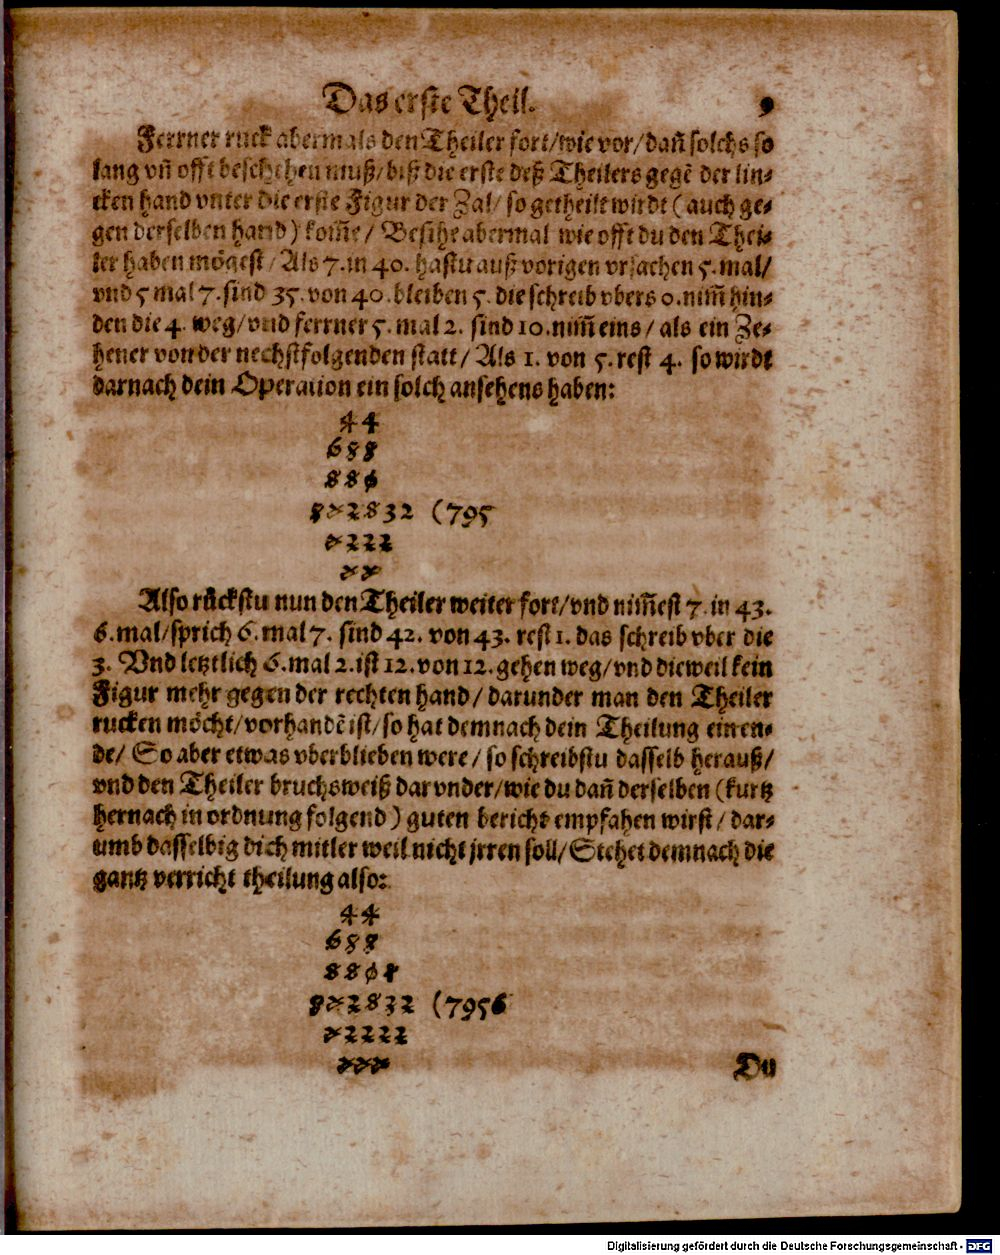 Das erste Theil. 9
Ferrner ruck abermals den Theiler fort/wie vor/dañ solchs so
lang vñ offt beschehen muß/biß die erste deß Theilers gegẽ der lin-
cken hand vnter die erste Figur der Zal/ so getheilt wirdt (auch ge-
gen derselben hand) kom̃e/ Besihe abermal wie offt du den Thei-
ler haben mögest/ Als 7. in 40. hastu auß vorigen vrsachen 5. mal/
vnd 5 mal 7. sind 35. von 40. bleiben 5. die schreib vbers 0. nim̃ hin-
den die 4. weg/vnd ferrner 5. mal 2. sind 10. nim̃ eins/ als ein Ze-
hener von der nechstfolgenden statt/ Als 1. von 5. rest 4. so wirdt
darnach dein Operation ein solch ansehens haben:
44
688
880
812832 (795
7222
77
Also růckstu nun den Theiler weiter fort/vnd nim̃est 7. in 43.
6. mal/sprich 6. mal 7. sind 42. von 43. rest 1. das schreib vber die
3. Vnd letztlich 6. mal 2. ist 12. von 12. gehen weg/vnd dieweil kein
Figur mehr gegen der rechten hand/ darunder man den Theiler
rucken möcht/vorhandẽ ist/so hat demnach dein Theilung ein en-
de/ So aber etwas vberblieben were/ so schreibstu dasselb herauß/
vnd den Theiler bruchsweiß darvnder/wie du dañ derselben (kurtz
hernach in ordnung folgend) guten bericht empfahen wirst/ dar-
umb dasselbig dich mitler weil nicht jrren soll/ Stehet demnach die
gantz verricht theilung also:
44
688
8801
812832 (7956
72222
777
Du
Digitalisierung gefördert durch die Deutsche Forschungsgemeinschaft - DFG